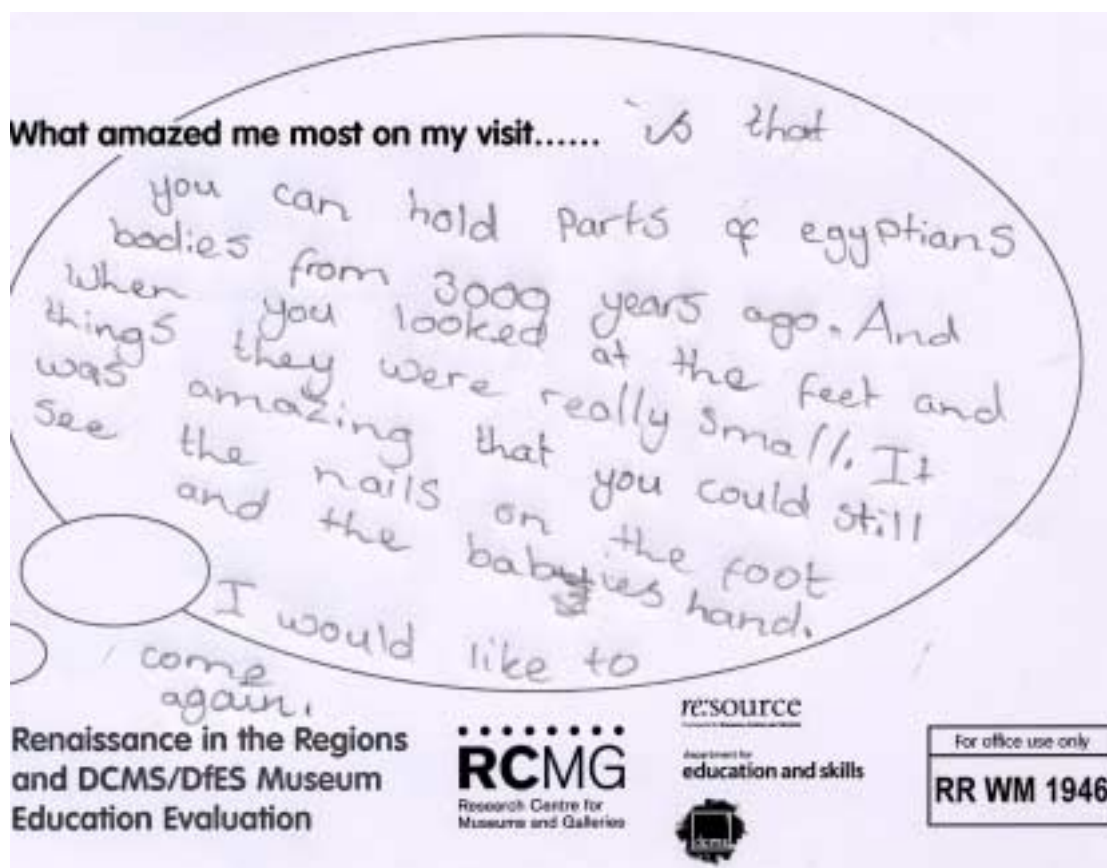 What amazed me most on my visit...... is that
you can hold parts of egyptians
bodies from 3000 years ago. And
when you looked at the feet and
things they were really small. It
was amazing that you could still
see the nails on the foot
and the babyies hand.
I would like to
come
again.
Renaissance in the Regions
and DCMS/DfES Museum
Education Evaluation
RCMG
Research Centre for
Museums and Galleries
re:source
department for
education and skills
dcms
For office use only
RR WM 1946